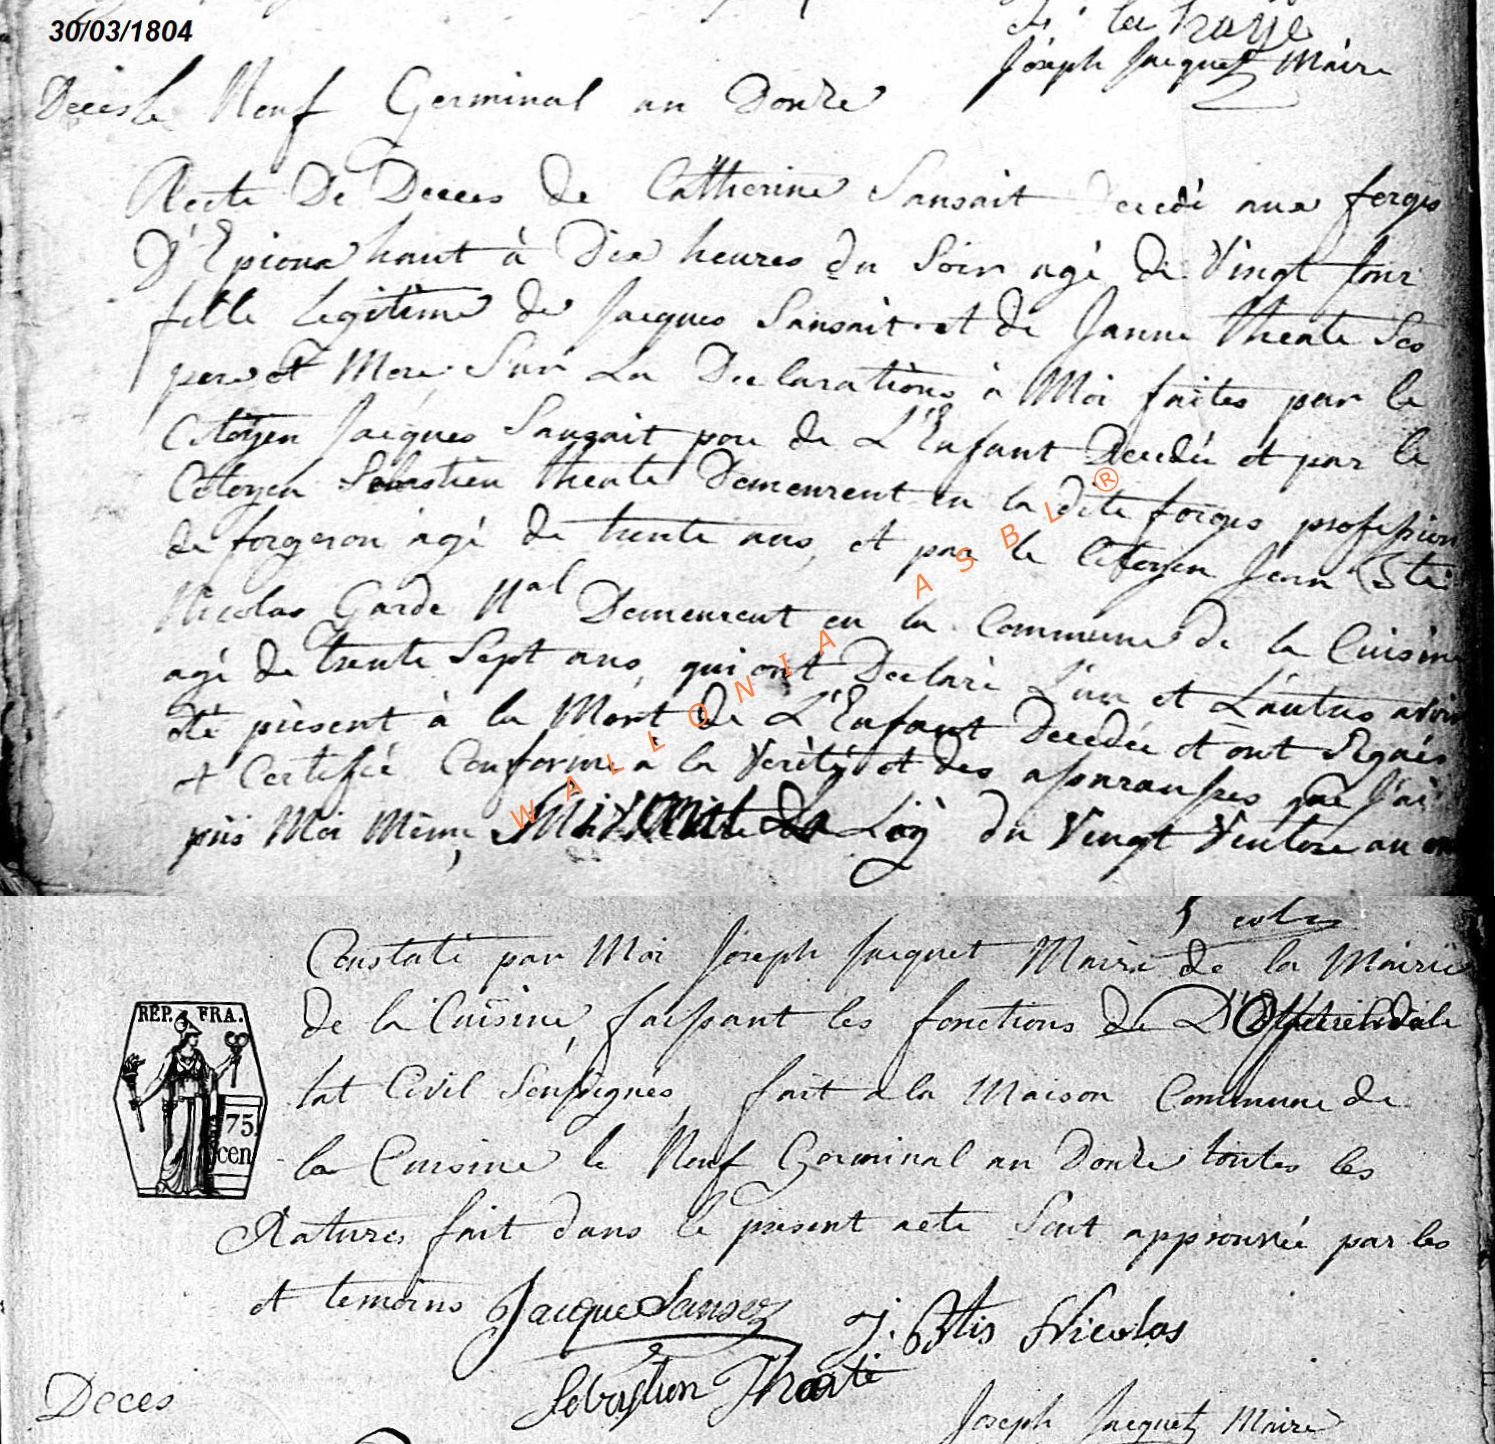 30/03/1804
Joseph Jacquet Maire
Deces le Neuf Germinal an Douze
Acte De Deces de Catherine Sansait decedé aux forges
D'Epioux haut à Dix heures du Soir agé de Vingt jour
fille Legitime de Jacques Sansait et de Janne theate Ses
pere et Mere, Sur La Declarations à Moi faites par le
Citoyen Jacques Sansait pere de L'Enfant Decedée et par le
Citoyen Sebastien theate Demeurent en la dite forges profession
de forgeron agé de trente ans, et par le Citoyen Jean Bte
Nicolas Garde Nal Demeurent en la Commune de la Cuisine
agé de trente Sept ans, qui ont Declaré L'un et L'autres avoir
été present à la Mort de L'Enfant decedée et ont Signés
et Certifié Conforme à la Verité et des assuransses que J'ai
pris Moi Même, Suivant La Loÿ du Vingt Ventose an
WALLONIA ASBL ®
Constaté par Moi Joseph Jacquet Maire de la Mairie
de la Cuisine, faissant les fonctions de D'Officier de le
tat Civil Soussignés, fait a la Maison Commune de
la Cuisine le Neuf Germinal an Douze toutes les
Ratures fait dans le present acte Sont approuvée par les
et temoins Jacque Sansez J. Btis Nicolas
Sebastien Theate
REP. FRA.
75 cen
Deces
Joseph Jacquet Maire